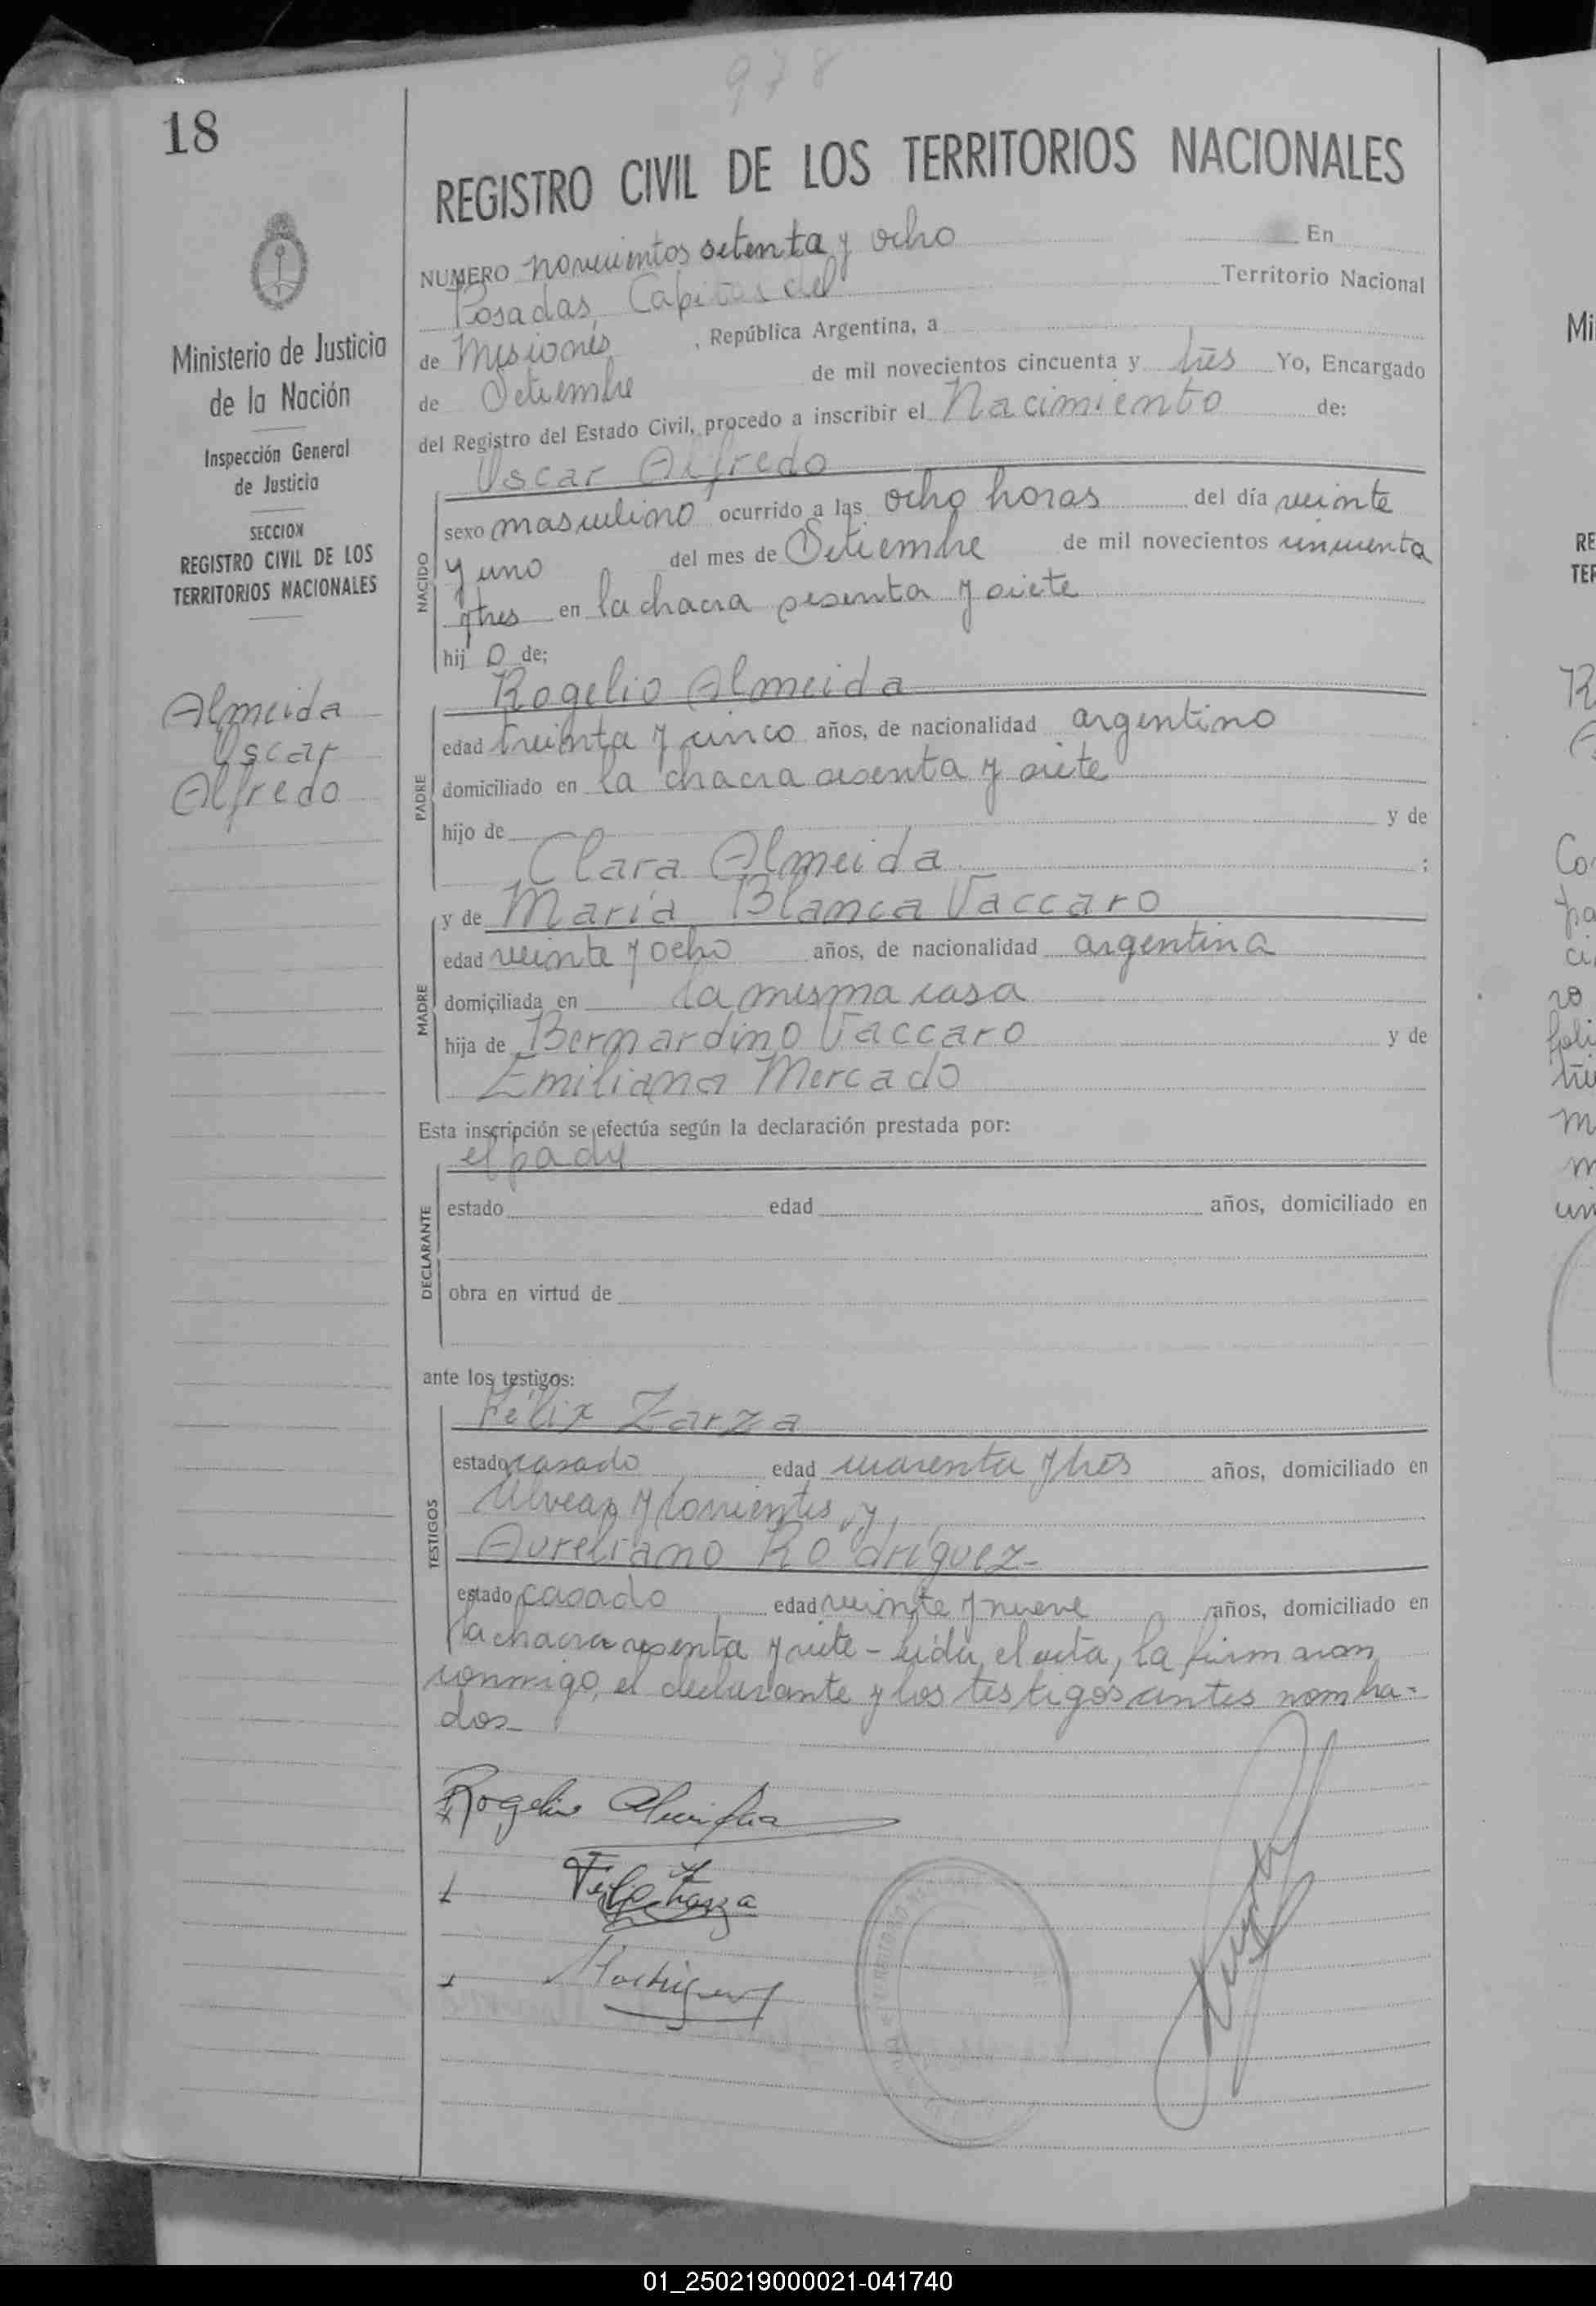 978
18
REGISTRO CIVIL DE LOS TERRITORIOS NACIONALES
Ministerio de Justicia
de la Nación
Inspección General
de Justicia
SECCION
REGISTRO CIVIL DE LOS
TERRITORIOS NACIONALES
Almeida
Oscar
Alfredo
NUMERO novecientos setenta y ocho En
Posadas, Capital del Territorio Nacional
de Misiones, República Argentina, a
de Setiembre de mil novecientos cincuenta y tres Yo, Encargado
del Registro del Estado Civil, procedo a inscribir el Nacimiento de:
Oscar Alfredo
NACIDO
sexo masculino ocurrido a las ocho horas del día veinte
y uno del mes de Setiembre de mil novecientos cincuenta
y tres en la chacra sesenta y siete
hijo de;
Rogelio Almeida
PADRE
edad treinta y cinco años, de nacionalidad argentino
domiciliado en la chacra sesenta y siete
hijo de y de
Clara Almeida ;
MADRE
y de María Blanca Vaccaro
edad veinte y ocho años, de nacionalidad argentina
domiciliada en la misma casa
hija de Bernardino Vaccaro y de
Emiliana Mercado
Esta inscripción se efectúa según la declaración prestada por:
el padre
DECLARANTE
estado edad años, domiciliado en
obra en virtud de
ante los testigos:
Félix Zarza
TESTIGOS
estado casado edad cuarenta y tres años, domiciliado en
Alvear y Corrientes y
Aureliano Rodríguez-
estado casado edad veinte y nueve años, domiciliado en
la chacra sesenta y siete - Leída el acta, la firmaron
conmigo, el declarante y los testigos antes nombra-
dos-
Rogelio Almeida
Felix Zarza
Rodriguez
01_250219000021-041740